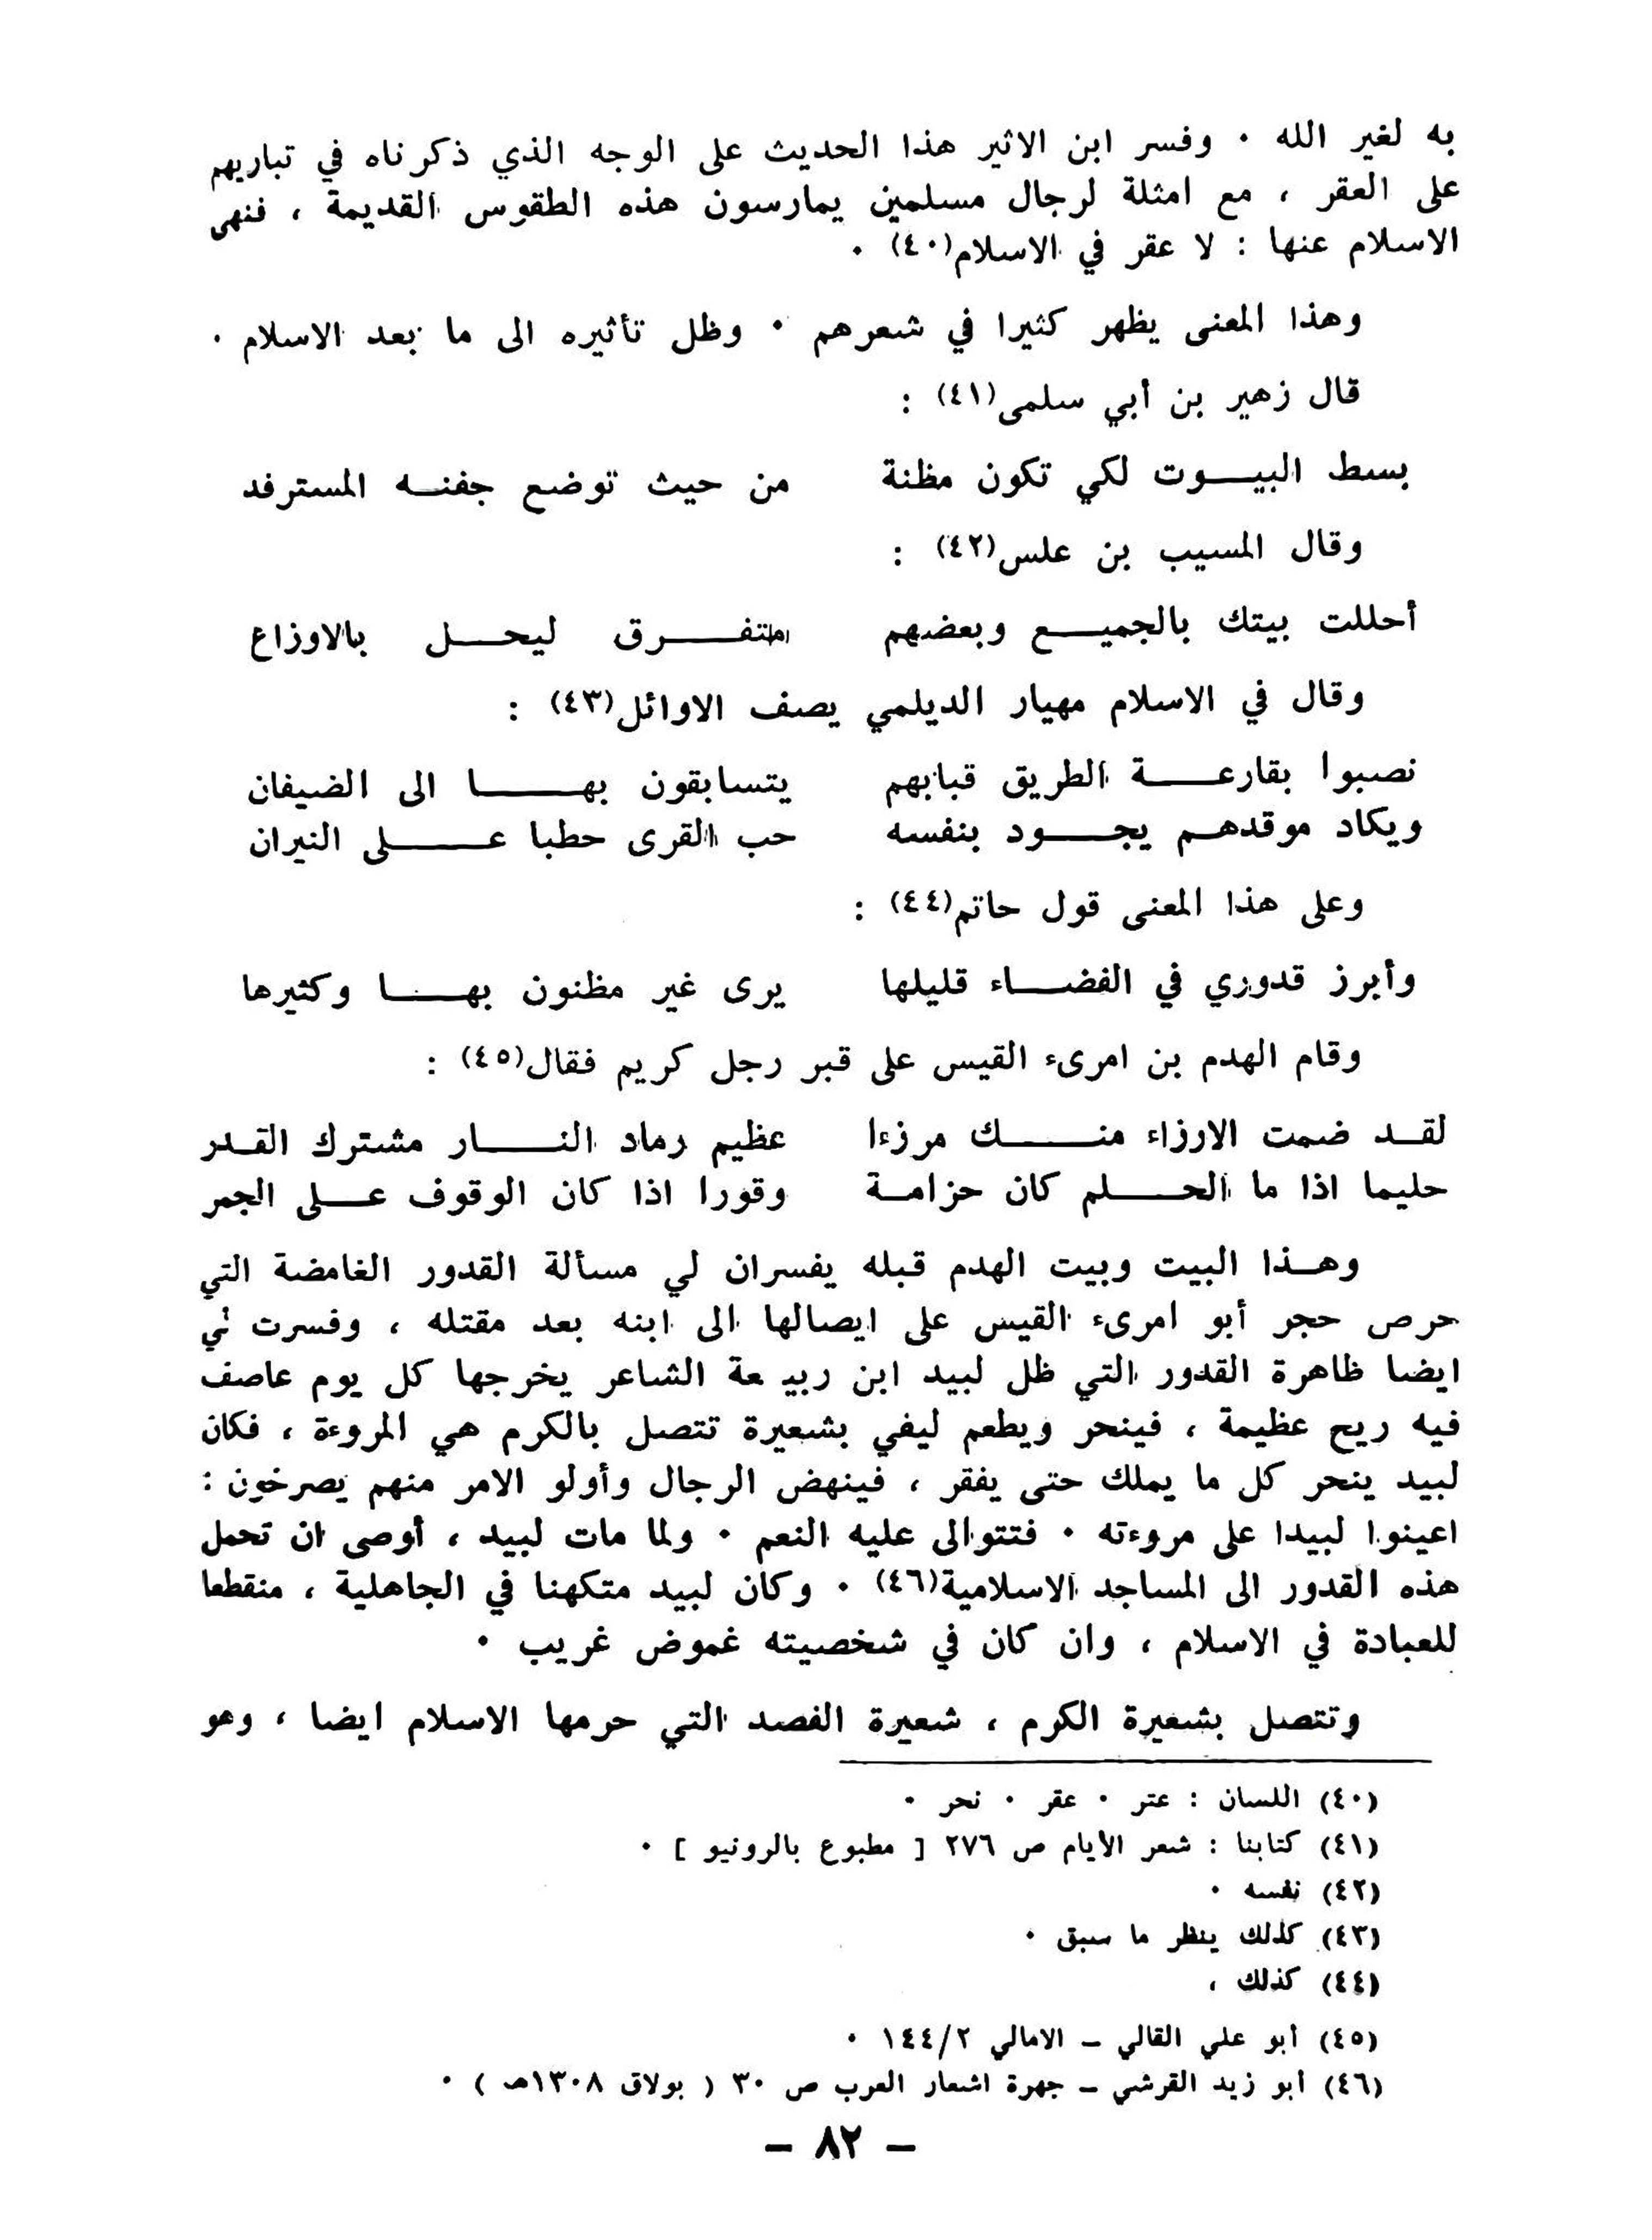 به لغير الله ٠ وفسر ابن الاثير هذا الحديث على الوجه الذي ذكرناه في تباريهم
على العقر ، مع امثلة لرجال مسلمين يمارسون هذه الطقوس القديمة ، فنهى
الاسلام عنها : لا عقر في الاسلام(٤٠) ٠
وهذا المعنى يظهر كثيرا في شعرهم ٠ وظل تأثيره الى ما بعد الاسلام ٠
قال زهير بن أبي سلمى(٤١) :
بسط البيـــوت لكي تكون مظنة من حيث توضع جفنــه المسترفد
وقال المسيب بن علس(٤٢) :
أحللت بيتك بالجميــع وبعضهم متفــــرق ليحــل بالاوزاع
وقال في الاسلام مهيار الديلمي يصف الاوائل(٤٣) :
نصبوا بقارعــــة الطريق قبابهم يتسابقون بهــــا الى الضيفان
ويكاد موقدهــم يجــــود بنفسه حب القرى حطبا عــــلى النيران
وعلى هذا المعنى قول حاتم(٤٤) :
وأبرز قدوري في الفضــاء قليلها يرى غير مظنون بهــــا وكثيرها
وقام الهدم بن امرىء القيس على قبر رجل كريم فقال(٤٥) :
لقــد ضمت الارزاء منــــك مرزءا عظيم رماد النــــار مشترك القــدر
حليما اذا ما الحــــلم كان حزامــة وقورا اذا كان الوقوف عــلى الجمر
وهــذا البيت وبيت الهدم قبله يفسران لي مسألة القدور الغامضة التي
حرص حجر أبو امرىء القيس على ايصالها الى ابنه بعد مقتله ، وفسرت لي
ايضا ظاهرة القدور التي ظل لبيد ابن ربيعة الشاعر يخرجها كل يوم عاصف
فيه ريح عظيمة ، فينحر ويطعم ليفي بشعيرة تتصل بالكرم هي المروءة ، فكان
لبيد ينحر كل ما يملك حتى يفقر ، فينهض الرجال وأولو الامر منهم يصرخون :
اعينوا لبيدا على مروءته ٠ فتتوالى عليه النعم ٠ ولما مات لبيد ، أوصى ان تحمل
هذه القدور الى المساجد الاسلامية(٤٦) ٠ وكان لبيد متكهنا في الجاهلية ، منقطعا
للعبادة في الاسلام ، وان كان في شخصيته غموض غريب ٠
وتتصل بشعيرة الكرم ، شعيرة الفصد التي حرمها الاسلام ايضا ، وهو
(٤٠) اللسان : عتر ٠ عقر ٠ نحر ٠
(٤١) كتابنا : شعر الأيام ص ٢٧٦ [ مطبوع بالرونيو ] ٠
(٤٢) نفسه ٠
(٤٣) كذلك ينظر ما سبق ٠
(٤٤) كذلك ،
(٤٥) أبو علي القالي – الامالي ١٤٤/٢ ٠
(٤٦) ابو زيد القرشي – جهرة اشعار العرب ص ٣٠ ( بولاق ١٣٠٨هـ ) ٠
– ٨٢ –